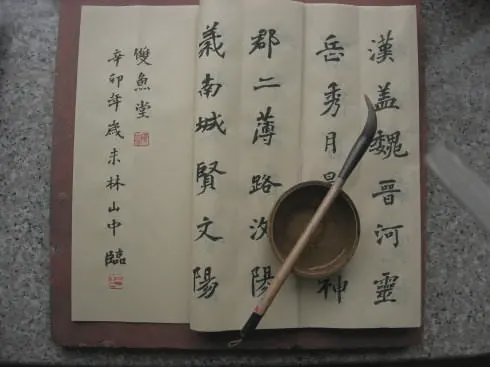 漢盖魏晉河靈
岳秀月神
郡二薄路陽
義南城賢文陽
雙魚堂
辛卯年歲末林山中臨